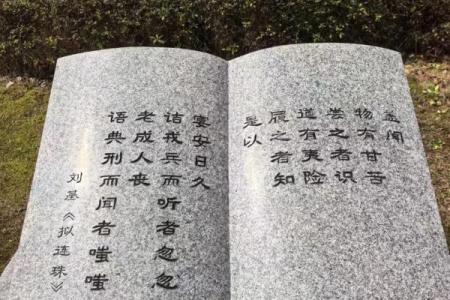 盖闻
物有甘苦
尝之者识
道有夷险
履之者知
是以
宴安日久
诘戎兵而听者忽忽
老成人丧
语典刑而闻者嗤嗤
刘基《拟连珠》